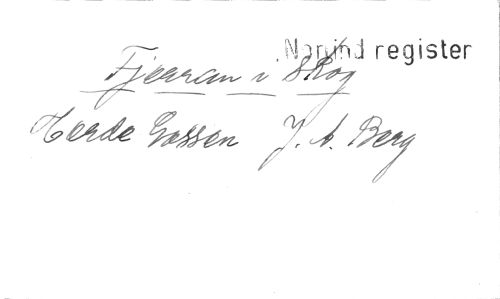 Norind register
Fjerran i skog
Herde Gossen J. A. Berg